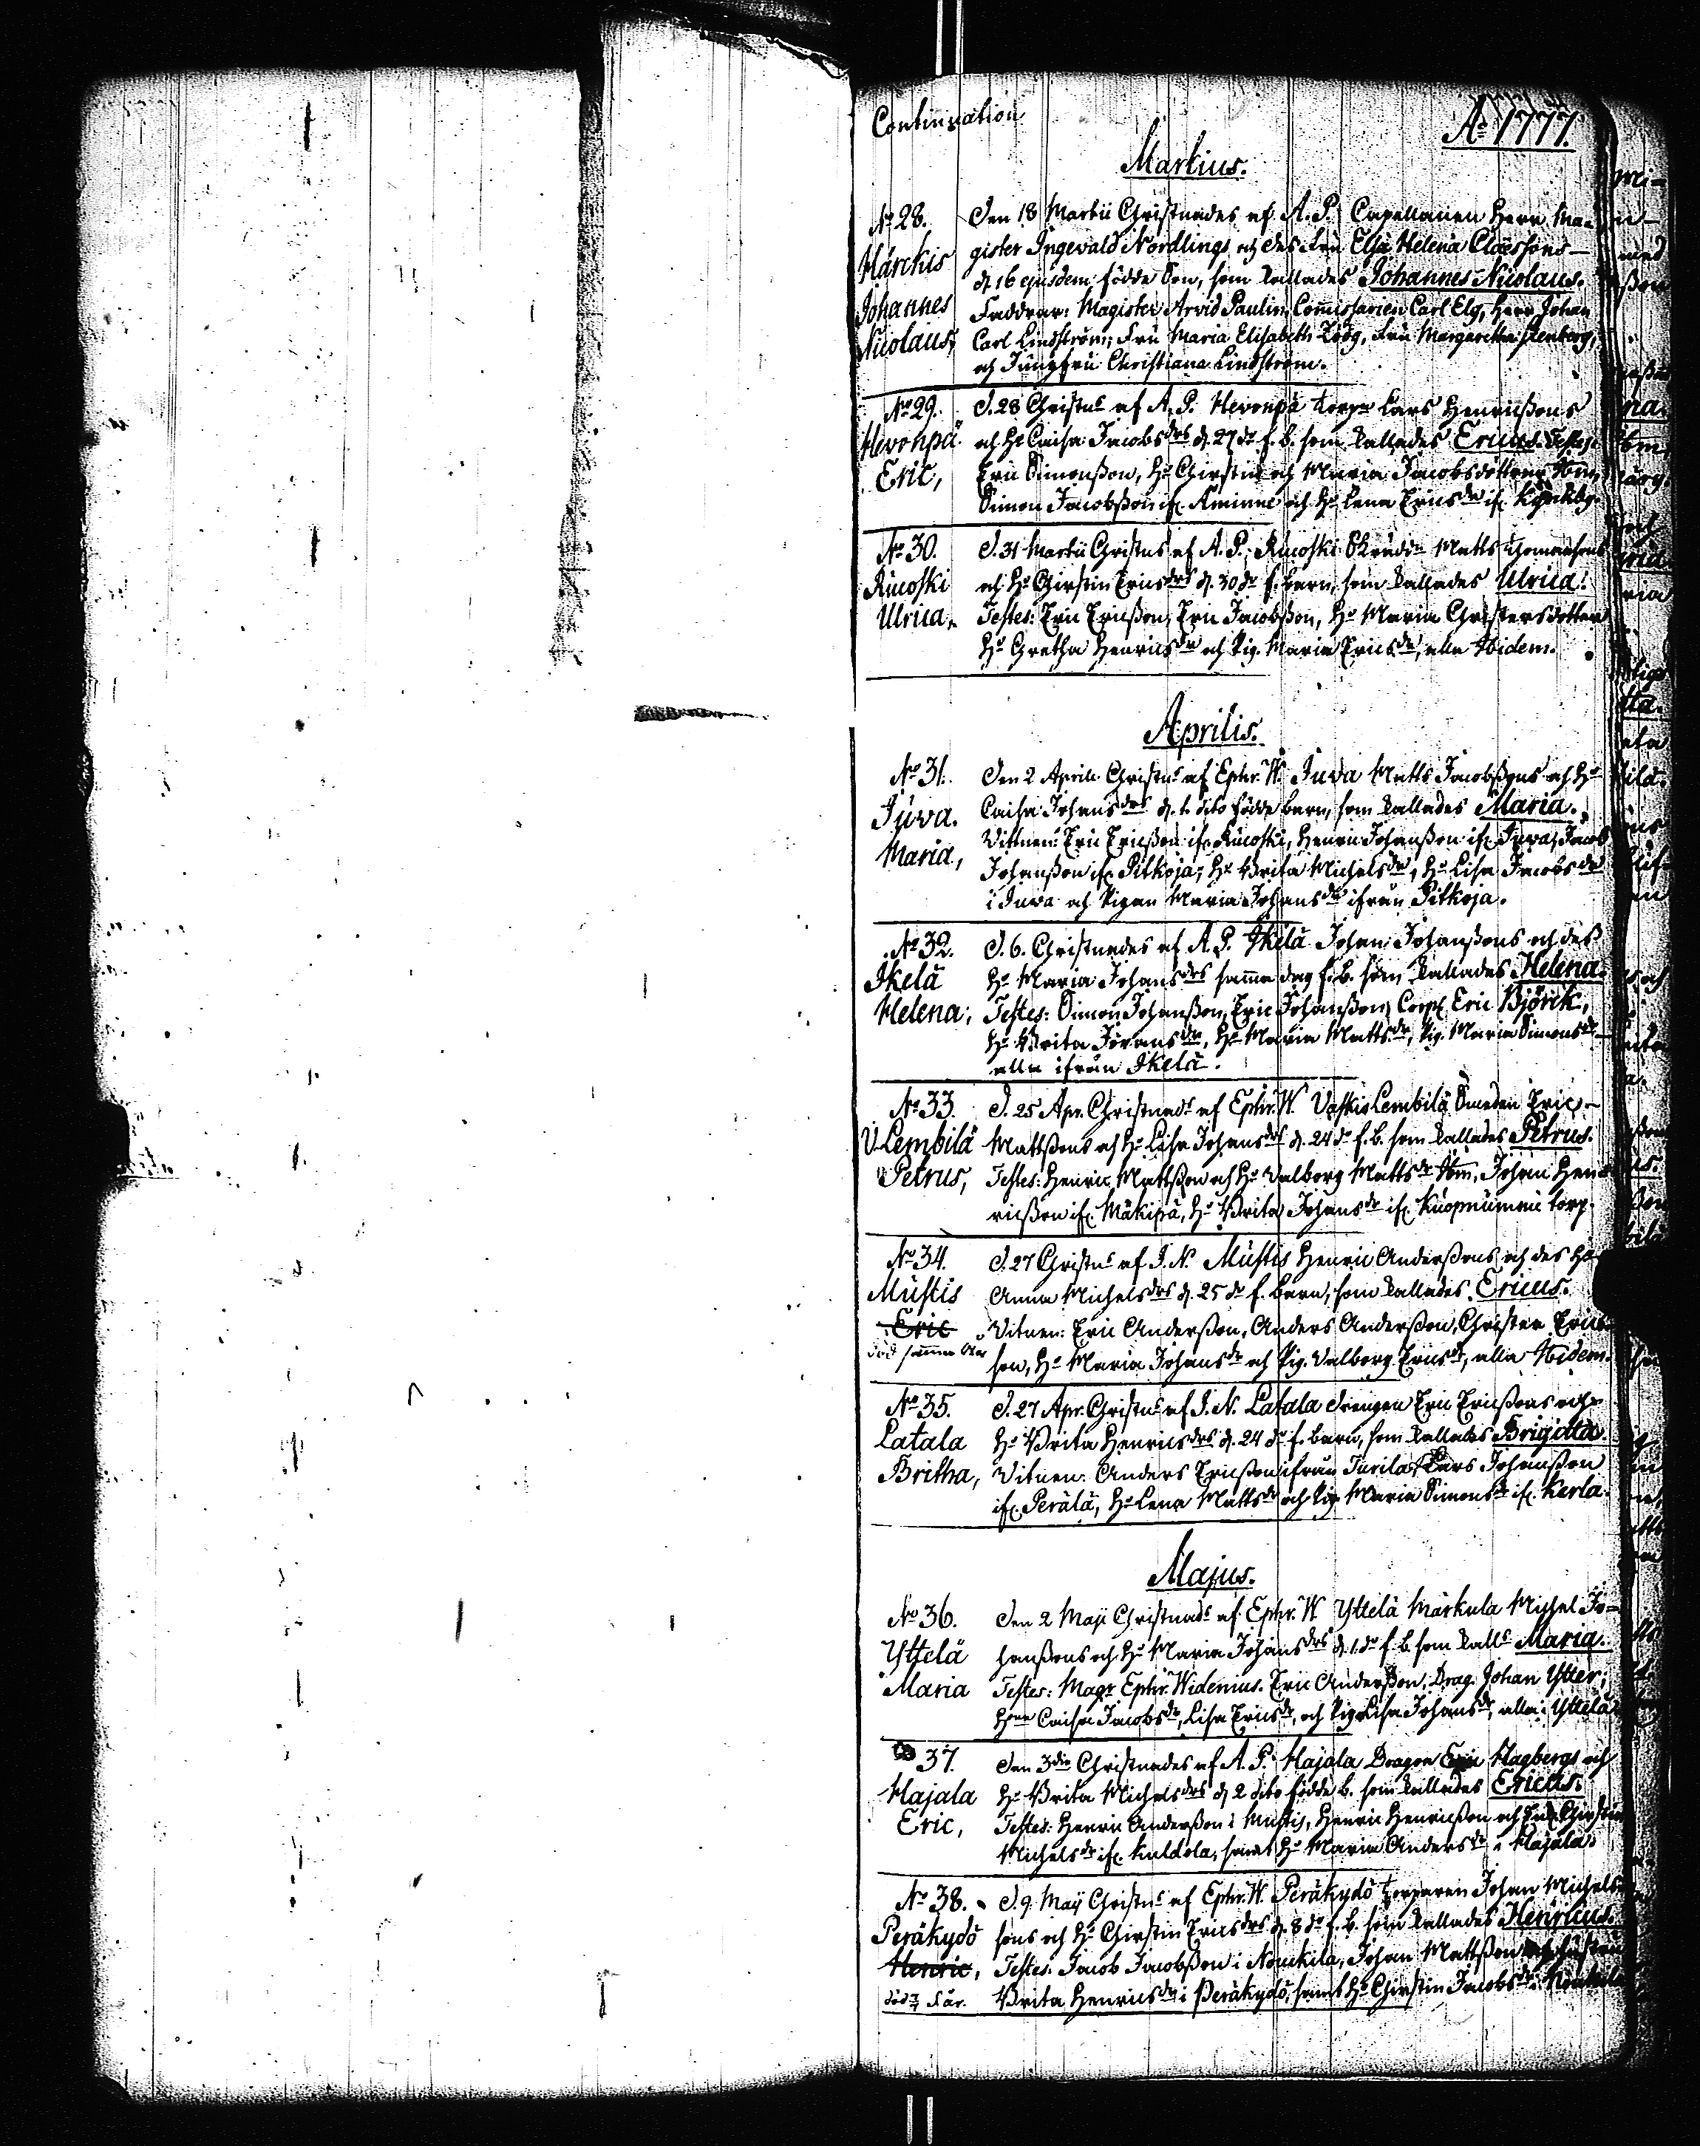 Continuation
Ao 1777.
Martius.
No 28.
Härckis
Johannes
Nicolaus,
Den 18 Martii Christnades af A. P. Capellanen Herr Ma-
gister Ingevald Nordlings och des Fru Elsa Helena Claessons
d. 16 ejusdem födde Son, som kallades Johannes Nicolaus.
Faddrar: Magister Arvid Paulin, Com̄issarien Carl Elg, Herr Johan
Carl Lindström, Fru Maria Elisabeth Fru Margaretha Stenberg,
och Jungfru Christiana Lindström.
No 29.
Hevonpä
Eric,
D. 28 Christns af A. P. Hevonpä torp. Lars Henricssons
och Ho Caisa Jacobsdrs d. 27 do f. b. som kallades Ericus. Testes:
Eric Simonsson, Ho Chirstin och Maria Jacobsdöttrar Ibm,
Simon Jacobsson if. Aminne och Ho Lena Ericsdr if.
No 30.
Ruoski
Ulrica,
D. 31 Martii Christns af A. P. Ruoski Skrädr Matts Thomassons
och Ho Chirstin Ericsdrs d. 30 do f. barn, som kallades Ulrica.
Testes: Eric Ericsson, Eric Jacobsson, Ho Maria Christersdotter
Ho Gretha Henricsdr och Pig. Maria Ericsdr, alla Ibidem.
Aprilis.
No 31.
Juva.
Maria,
Den 2 Aprili Christns af Ephr. W. Juva Matts Jacobssons och Ho
Caisa Johansdrs d. 1. dito födde barn, som kallades Maria.
Vittnen: Eric Ericsson if. Ruoski, Henric Johansson if. Juva, Jacob
Johansson if. Pitkoja, Ho Brita Michelsdr, Ho Lisa Jacobsdr
i Juva och Pigan Maria Johansdr ifrån Pitkoja.
No 32.
Ikelä
Helena,
D. 6. Christnades af A. P. Ikelä Johan Johanssons och des
Ho Maria Johansdrs sam̄a dag f. b. som kallades Helena.
Testes: Simon Johansson, Eric Johansson, Corpl. Eric Björck,
Ho Brita Jöransdr, Ho Maria Mattsdr, Pig. Maria Simonsdr
alla ifrån Ikelä.
No 33.
V. Lembilä
Petrus,
D. 25 Apr. Christnads af Ephr. W. VaskisLembilä Smeden Eric
Mattssons och Ho Lisa Johansdrs d. 24 do f. b. som kallades Petrus.
Testes: Henric Mattsson och Ho Valborg Mattsdr Ibm, Johan Hen-
ricsson if. Mäkipä, Ho Brita Johansdr if. Kuopnummi torp.
No 34.
Mustis
Eric
död sam̄a Åer
D. 27 Christns af I. N. Mustis Henric Anderssons och des Ho
Anna Michelsdrs d. 25 do f. barn, som kallades Ericus.
Vitnen: Eric Andersson, Anders Andersson, Christer Erics-
son, Ho Maria Johansdr och Pig. Valborg Ericsdr, alla Ibidem.
No 35.
Latala
Britha,
D. 27 Apr. Christns af I. N. Latala drengen Eric Ericssons och
Ho Brita Henricsdrs d. 24 do f. barn, som kallades Brigitta.
Vitnen: Anders Ericsson ifrån Jurila, Lars Johansson
if. Perälä, Ho Lena Mattsdr och Pig. Maria Simonsdr if. Kerla.
Majus.
No 36.
Yttelä
Maria
Den 2 Maji Christnads af Ephr. W. Yttelä Markula Michel Jo-
hanssons och Ho Maria Johansdrs d. 1. do f. b. som kalls Maria.
Testes: Magr Ephr. Widenius. Eric Andersson, Drag. Johan Ytter,
Caisa Jacobsdr, Lisa Ericsdr, och Pig. Lisa Johansdr, alla i Yttelä.
37.
Hajala
Eric,
Den 3die Christnades af A. P. Hajala Dragon Eric Hagbergs och
Ho Brita Michelsdrs d. 2 dito födde b. som kallades Ericus.
Testes: Henric Andersson i Mustis, Henric Henricsson och Chirstin
Michelsdr if. Kuldola, samt Ho Maria Andersdr i Hajala.
No 38.
Peräkydö
Henric,
död 7 år.
D. 9. Maij Christns af Ephr. W. Peräkydö torparen Johan Michels-
sons och Ho Chirstin Ericsdrs d. 8 do f. b. som kallades Henricus.
Testes: Jacob Jacobsson i Noukila, Johan Mattsson och hustru
Brita Henricsdr i Peräkydö, samt Ho Chirstin Jacobsdr i Noukila